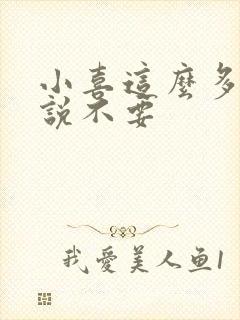 小喜這麼多
說不要
我愛美人鱼1